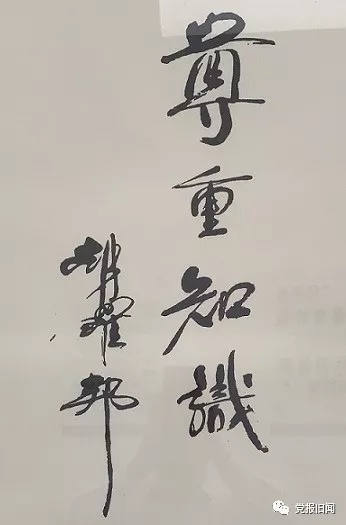 尊重知識
胡耀邦
党报旧闻